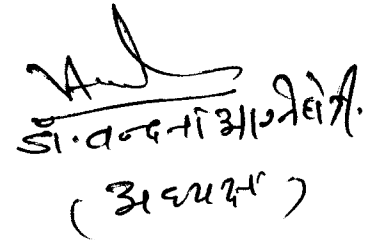 डॉ. वन्दना अग्निहोत्री.
(अध्यक्ष)